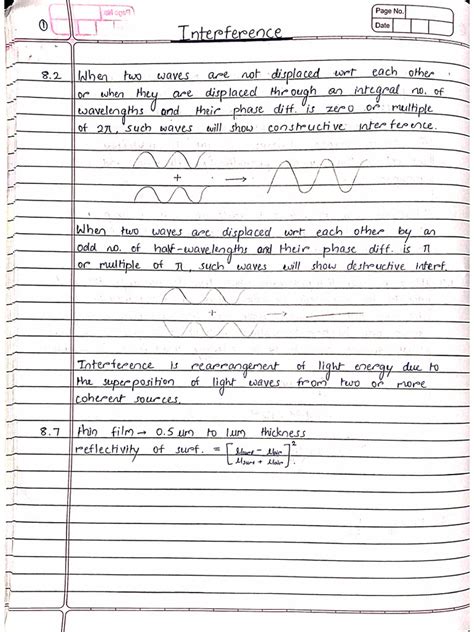 Page No.
Date
①
Interference
8.2 When two waves are not displaced wrt each other
or when they are displaced through an integral no. of
wavelengths and their phase diff. is zero or multiple
of 2π, such waves will show constructive interference.
+ →
When two waves are displaced wrt each other by an
odd no. of half-wavelengths and their phase diff. is π
or multiple of π, such waves will show destructive interf.
+ →
Interference is rearrangement of light energy due to
the superposition of light waves from two or more
coherent sources.
8.7 thin film → 0.5 um to 1um thickness
reflectivity of surf. = [μsurf - μair / μsurf + μair]²